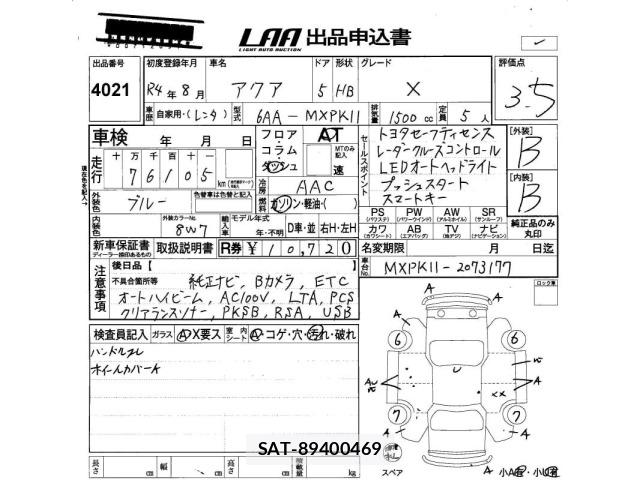 LAA 出品申込書
LIGHT AUTO AUCTION
出品番号 初度登録年月 車名 ドア 形状 グレード 評価点
4021 R4年8月 アクア 5 HB X 3.5
車歴 自家用・(レンタ) 型式 6AA-MXPK11 排気量 1500cc 定員 5人
車検 年 月 日 フロア コラム ダッシュ AT MTのみ記入 速
セールスポイント
トヨタセーフティセンス
レーダークルーズコントロール
LEDオートヘッドライト
プッシュスタート
スマートキー
[外装] B
[内装] B
走行 十 万 千 百 十
7 6 1 0 5 km
現在色を記入
外装色 ブルー 色替車は色替と記入 元色( )
冷房 AAC
燃料 ガソリン・軽油・( )
外装カラーNo. 8W7 輸入車 モデル年式 年・不明 D車・並 右H・左H
PS (パワステ) PW (パワーウインド) AW (アルミホイル) SR (サンルーフ) 純正品のみ丸印
カワ (カワシート) AB (エアバッグ) TV (地デジ) ナビ (ナビゲーション)
新車保証書 ディーラー捺印あるもの 取扱説明書 R券 ¥10,720
名変期限 月 日迄
車台No. MXPK11-2073177
ロック車
注意事項
後日品 [ ]
不具合箇所等 純正ナビ, Bカメラ, ETC
オートハイビーム, AC100V, LTA, PCS
クリアランスソナー, PKSB, RSA, USB
検査員記入 ガラス A X要ス 室内シート A コゲ・穴・汚れ・破れ
ハンドルスレ
ホイールカバーA
A
6 6
A A
U
A
XX
7 7
A A
スペア
A 小A 小U
SAT-89400469
長さ cm 幅 cm 高さ cm 積載量 kg